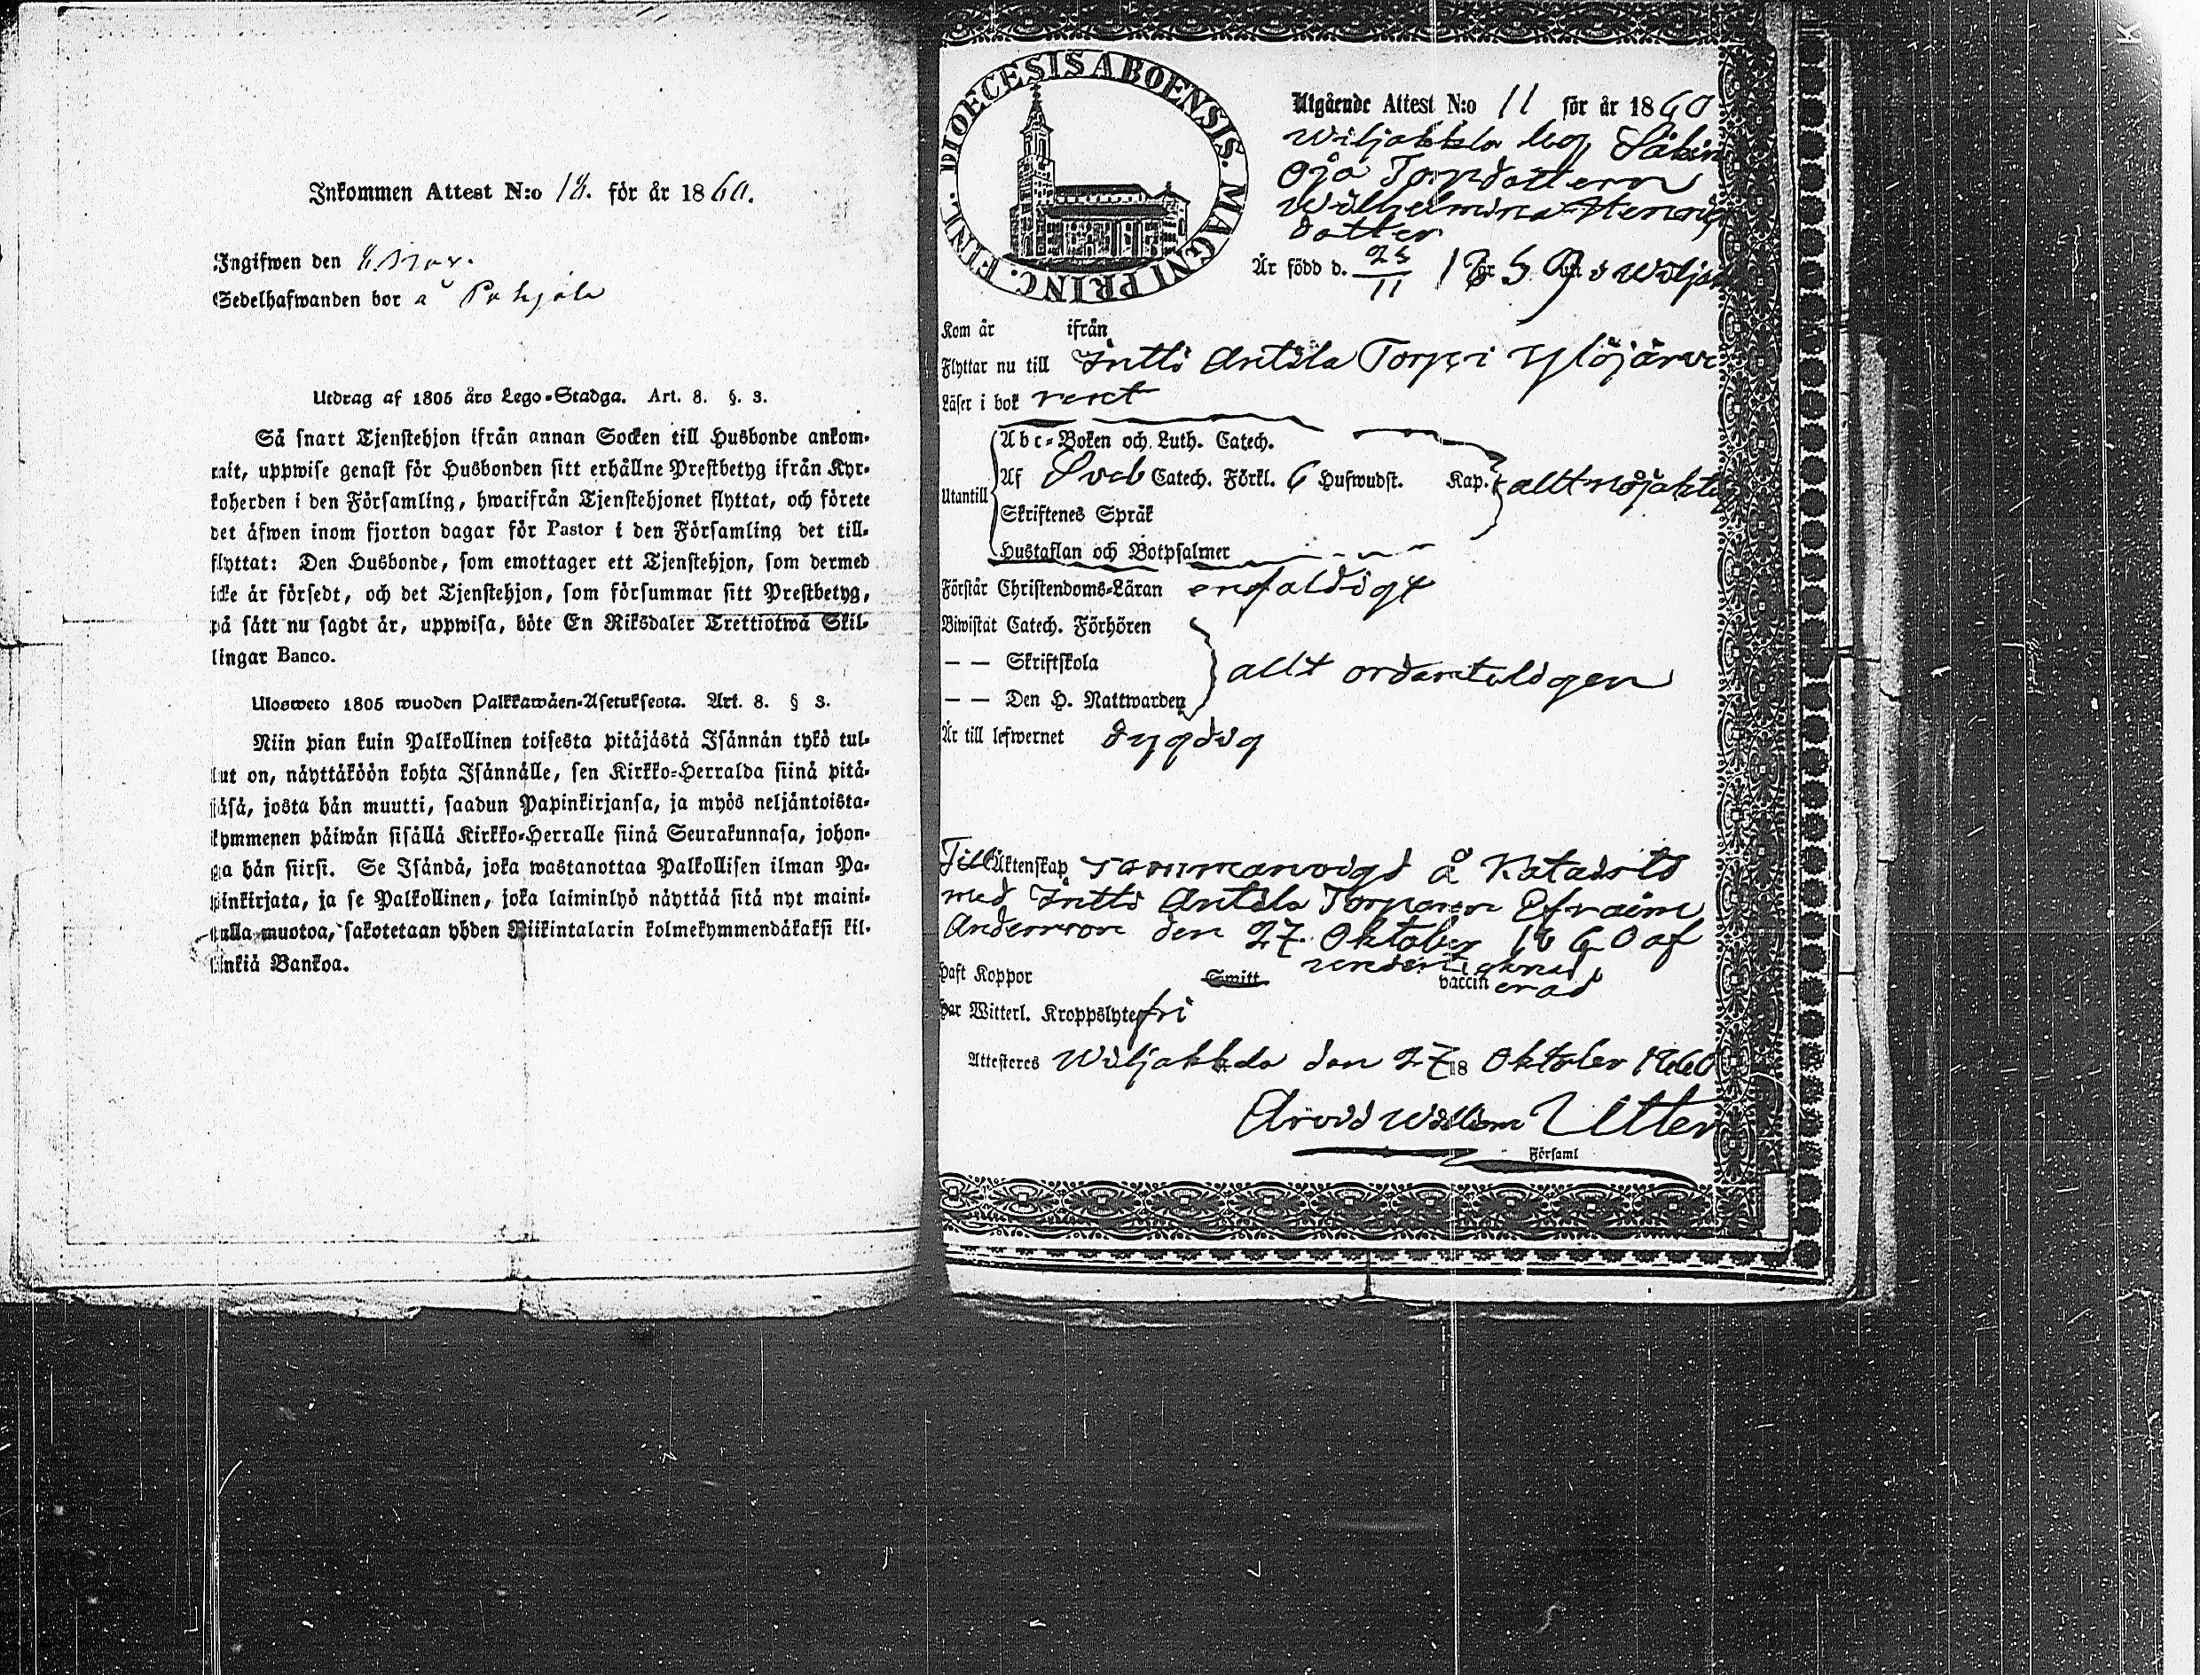 Inkommen Attest N:o 18. för år 1860.
Ingifwen den Nov.
Sedelhafwanden bor å Pohjola
Utdrag af 1805 års Lego-Stadga. Art. 8. §. 3.
Så snart Tjenstehjon ifrån annan Socken till Husbonde ankom-
mit, uppwise genast för Husbonden sitt erhållne Prestbetyg ifrån Kyr-
koherden i den Församling, hwarifrån Tjenstehjonet flyttat, och förete
det äfwen inom fjorton dagar för Pastor i den Församling det till-
flyttat: Den Husbonde, som emottager ett Tjenstehjon, som dermed
icke är försedt, och det Tjenstehjon, som försummar sitt Prestbetyg,
på sätt nu sagdt är, uppwisa, böte En Riksdaler Trettiotwå Skil-
lingar Banco.
Ulosweto 1805 wuoden Palkkawäen-Asetuksesta. Art. 8. § 3.
Niin pian kuin Palkollinen toisesta pitäjästä Isännän tykö tul-
lut on, näyttäköön kohta Isännälle, sen Kirkko-Herralda siinä pitä-
jäsä, josta hän muutti, saadun Papinkirjansa, ja myös neljäntoista-
kymmenen päiwän sisällä Kirkko-Herralle siinä Seurakunnasa, johon-
ga hän siirsi. Se Isändä, joka wastanottaa Palkollisen ilman Pa-
pinkirjata, ja se Palkollinen, joka laiminlyö näyttää sitä nyt maini-
tulla muotoa, sakotetaan yhden Riikintalarin kolmekymmendäkaksi kil-
linkiä Bankoa.
DIOECESIS ABOENSIS. MAGNI PRINC. FINL.
Utgående Attest N:o 11 för år 1860
Wiljakkla
Oja Torpdottern
Wilhelmina Henriks
dotter
Är född d. 25/11 i Wiljak
Kom år ifrån
Flyttar nu till Intti Antila Torp i Ylöjärvi
Läser i bok rent
Abc-Boken och Luth. Catech.
Utantill Af Sveb Catech. Förkl. 6 Hufwudst. Kap. allt nöjaktig
Skriftenes Språk
Hustaflan och Botpsalmer
Förstår Christendoms-Läran enfaldigt
Biwistat Catech. Förhören
— — Skriftskola allt ordenteligen
— — Den H. Nattwarden
Är till lefwernet dygdig
Till Äktenskap sammanvigd å Katadsto
med Intti Antila Torparen Efraim
Andersson den 27. Oktober 1860 af
undertecknad
Haft Koppor Smitt vaccinerad
Har Witterl. Kroppslyte fri
Attesteres Wiljakkala den 27 18 Oktober 1860
Arvid Willem Utter
Församl
K